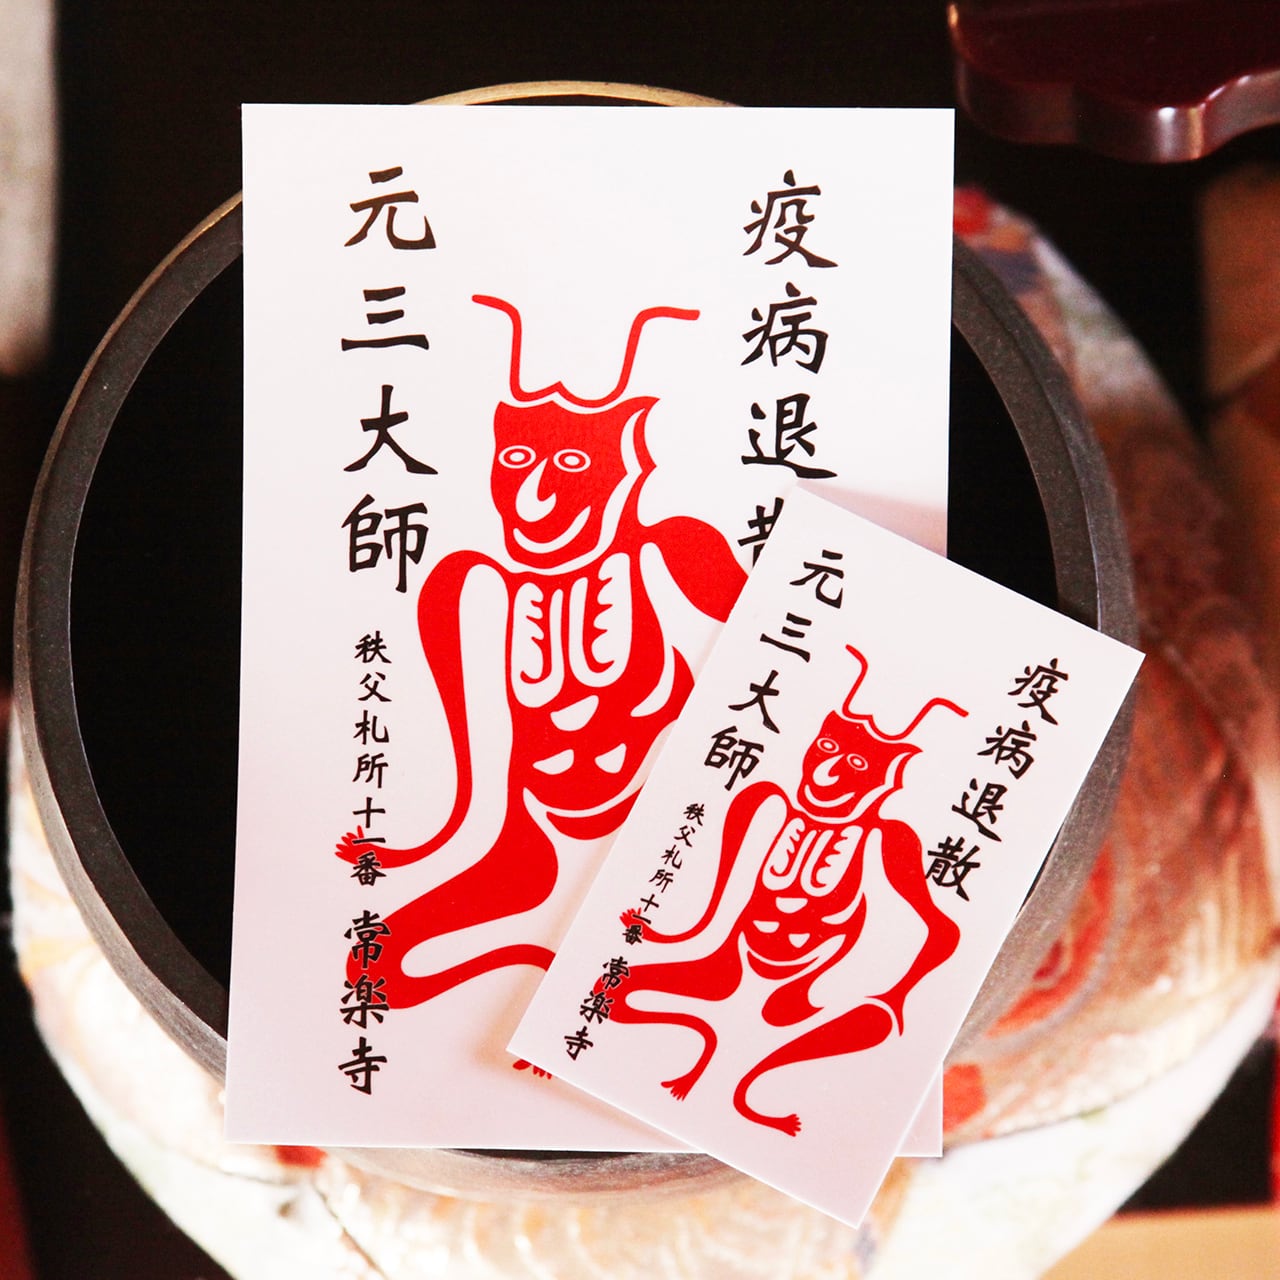 疫病退散
元三大師
秩父札所十一番 常楽寺
疫病退散
元三大師
秩父札所十一番 常楽寺